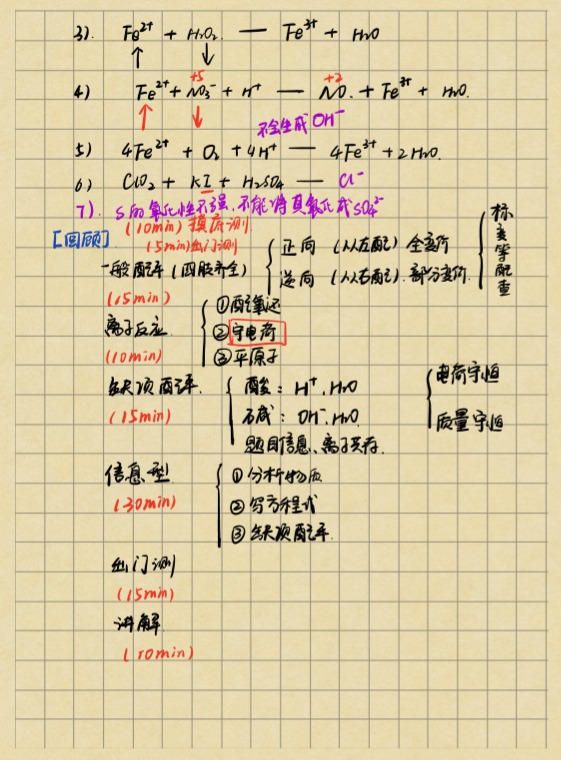 3). Fe²⁺ + H₂O₂ — Fe³⁺ + H₂O
+5 +2
4) Fe²⁺ + NO₃⁻ + H⁺ — NO + Fe³⁺ + H₂O.
不会生成OH⁻
5) 4Fe²⁺ + O₂ + 4H⁺ — 4Fe³⁺ + 2H₂O.
6) ClO₂ + KI + H₂SO₄ — Cl⁻
7). S的氧化性不强,不能将其氧化成SO₄²⁻
(10min) 摸底测
[回顾] (5min)出门测
一般配平 (四肢齐全)
正向 (从左配) 全变价
逆向 (从右配). 部分变价.
标变等配查
(15min)
离子反应
(10min)
①配氧还
②守电荷
③平原子
缺项配平.
(15min)
酸: H⁺. H₂O
碱: OH⁻. H₂O.
题目信息、离子共存.
电荷守恒
质量守恒
信息型
(30min)
①分析物质
②写方程式
③缺项配平.
出门测
(15min)
讲解
(10min)